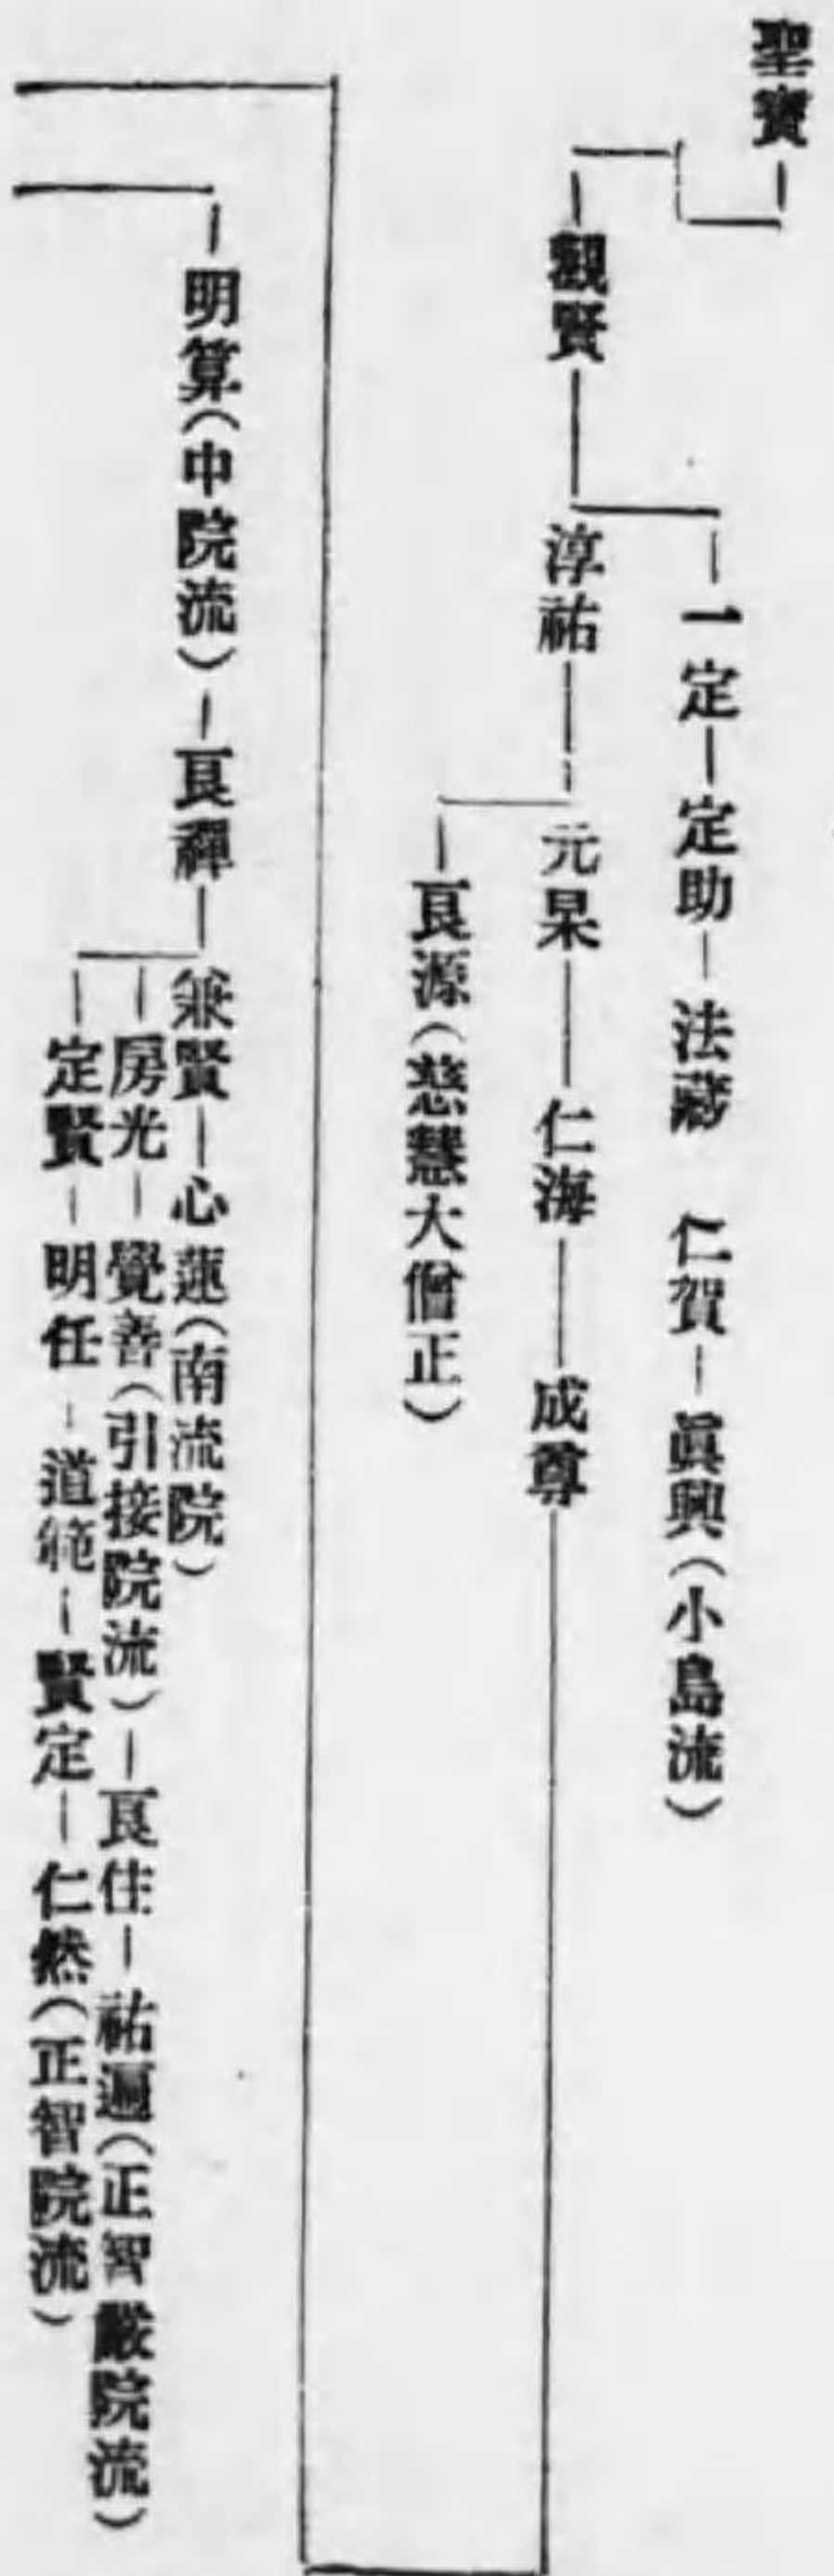 聖寶
一定―定助―法藏 仁賀―眞興(小島流)
觀賢―淳祐―元杲―仁海―成尊
良源(慈慧大僧正)
明算(中院流)―良禪―兼賢―心蓮(南流院)
房光―覺善(引接院流)―良住―祐遍(正智嚴院流)
定賢―明任―道範―賢定―仁然(正智院流)